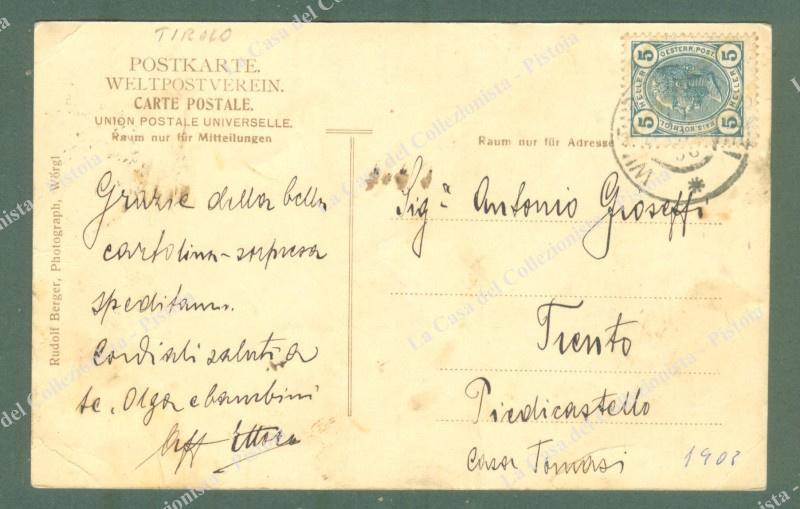 TIROLO
POSTKARTE.
WELTPOSTVEREIN.
CARTE POSTALE.
UNION POSTALE UNIVERSELLE.
Raum nur für Mitteilungen
Grazie della bella
cartolina-sorpresa
speditami.
Cordiali saluti a
te, Olga e bambini
Aff Ettore
Rudolf Berger, Photograph, Wörgl
Raum nur für Adresse
5 OESTERR. POST. 5
HELLER HELLER
5 KAIS. KOENIGL. 5
Sig. Antonio Gioseffi
Trento
Piedicastello
Casa Tomasi
1903
La Casa del Collezionista - Pistoia